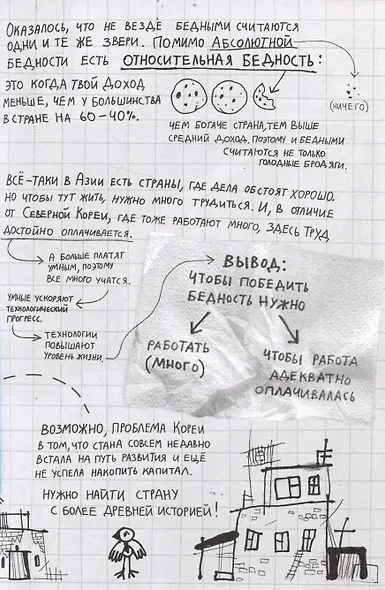 Оказалось, что не везде бедными считаются
одни и те же звери. Помимо абсолютной
бедности есть относительная бедность:
это когда твой доход
меньше, чем у большинства
в стране на 60–40%.
(ничего)
чем богаче страна, тем выше
средний доход. Поэтому и бедными
считаются не только
голодные бродяги.
Всё-таки в Азии есть страны, где дела обстоят хорошо.
Но чтобы тут жить, нужно много трудиться. И, в отличие
от Северной Кореи, где тоже работают много, здесь труд
достойно оплачивается.
А больше платят
умным, поэтому
все много учатся.
Умные ускоряют
технологический
прогресс.
Технологии
повышают
уровень жизни.
Вывод:
чтобы победить
бедность нужно
работать
(много)
чтобы работа
адекватно
оплачивалась
Возможно, проблема Кореи
в том, что стана совсем недавно
встала на путь развития и ещё
не успела накопить капитал.
Нужно найти страну
с более древней историей!